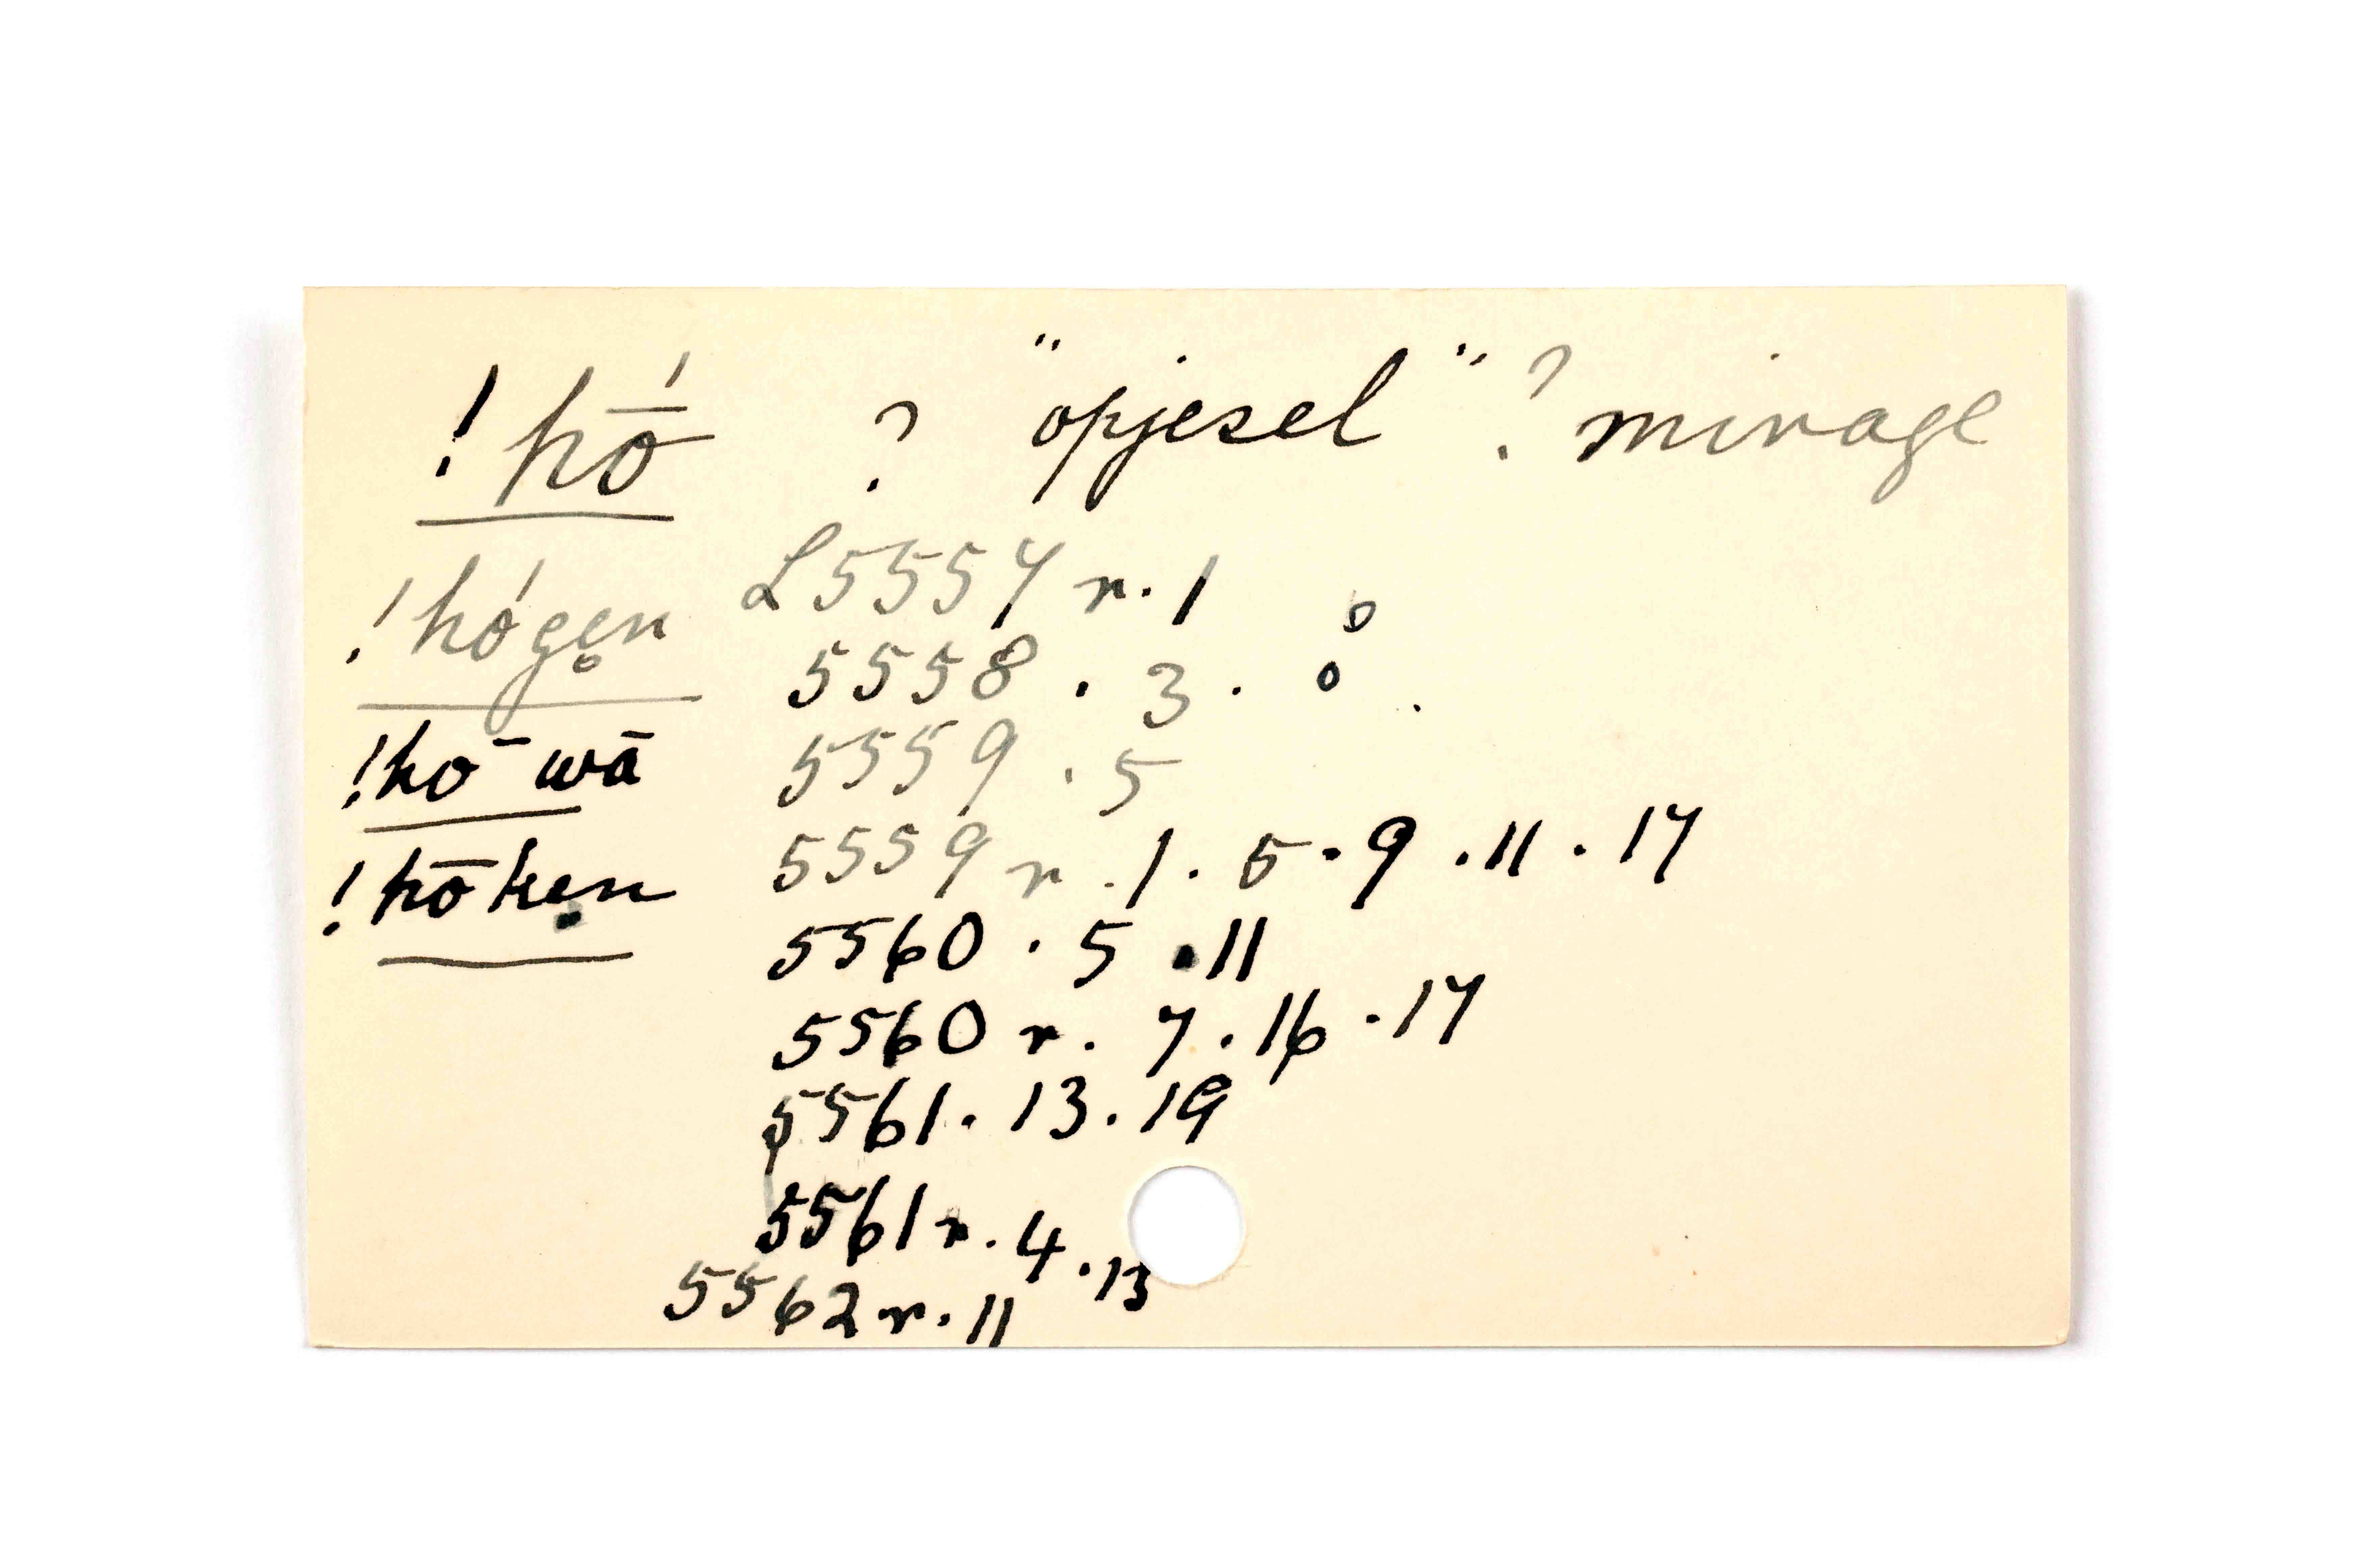 !hṓ ? "opjesel" ? mirage
!hógen̥ L5557 r. 1
5558 . 3 .
!hō wā 5559 . 5
!hōken 5559 r . 1 . 5 . 9 . 11 . 17
5560 . 5 . 11
5560 r. 7 . 16 . 17
5561 . 13 . 19
5561 r. 4 . 13
5562 r. 11